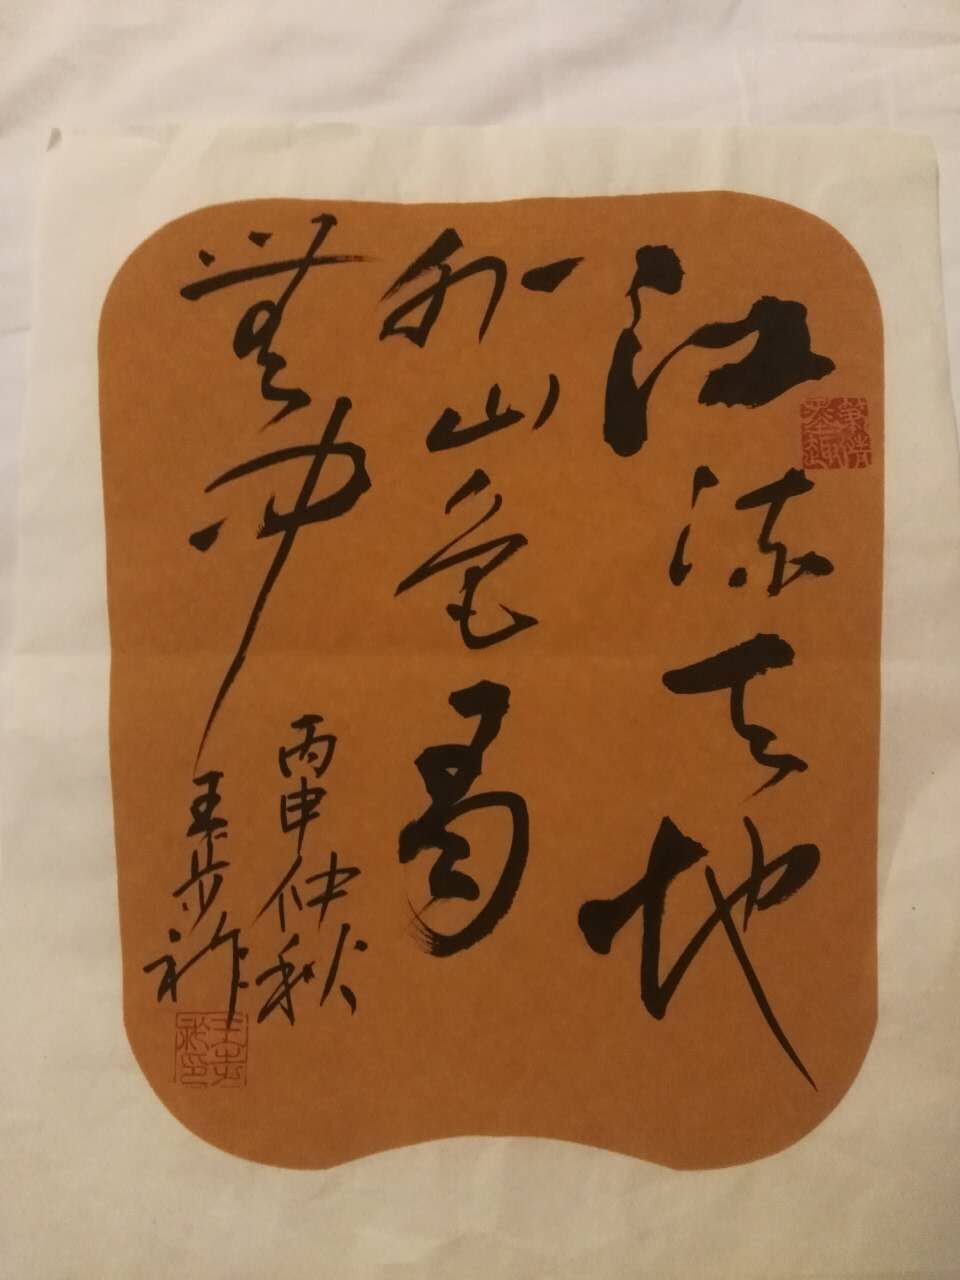 江流天地
外山色有
無中
丙申仲秋
王步祚